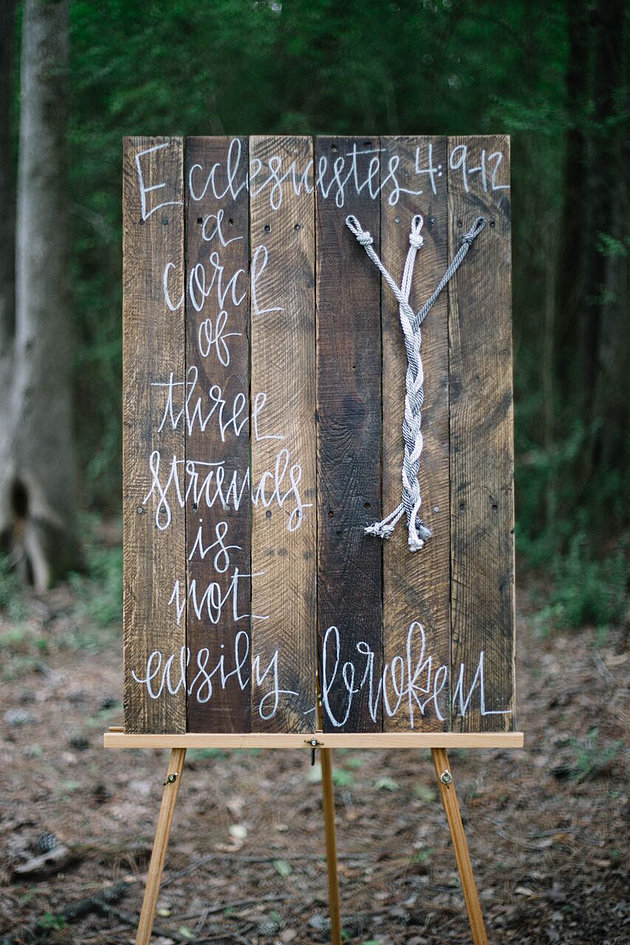 Ecclesiastes 4:9-12
a
cord
of
three
strands
is
not
easily broken